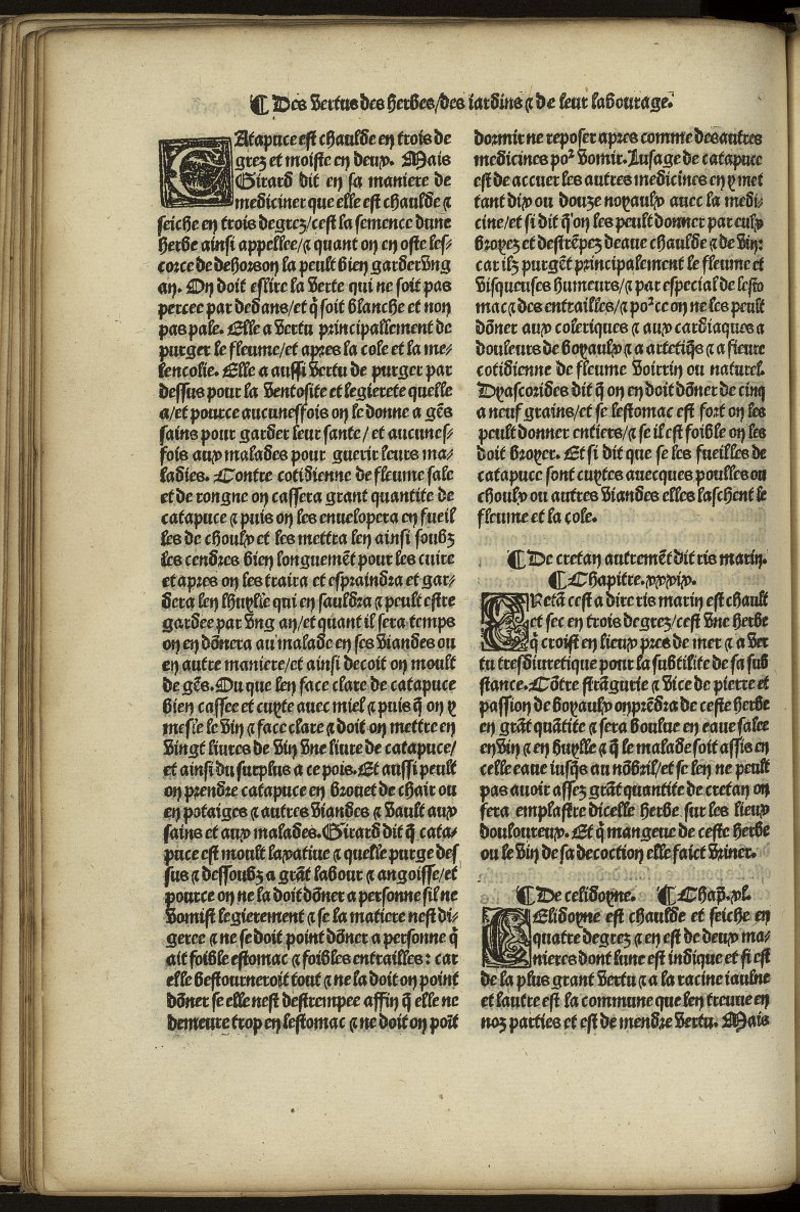 ¶ Des vertus des herbes/des iardins ⁊ de leur labourage.
CAtapuce est chaulde en trois de
grez et moiste en deux. Mais
Girard dit en sa maniere de
mediciner que elle est chaulde ⁊
seiche en trois degrez/cest la semence dune
herbe ainsi appellee/⁊ quant on en oste les⸗
corce de dehors on la peult bien garder vng
an. On doit eslire la verte qui ne soit pas
percee par dedans/et q̃ soit blanche et non
pas pale. Elle a vertu principallement de
purger le fleume/et apres la cole et la me⸗
lencolie. Elle a aussi vertu de purger par
dessus pour la ventosite et legierete quelle
a/et pource aucunesfois on le donne a gẽs
sains pour garder leur sante/ et aucunes⸗
fois aux malades pour guerir leurs ma⸗
ladies. Contre cotidienne de fleume sale
et de rongne on cassera grant quantite de
catapuce ⁊ puis on les enuelopera en fueil
les de choulx et les mettra len ainsi soubz
les cendres bien longuemẽt pour les cuire
et apres on les traira et espraindra et gar⸗
dera len lhuylle qui en sauldra ⁊ peult estre
gardee par vng an/et quant il sera temps
on en dõnera au malade en ses viandes ou
en autre maniere/et ainsi decoit on moult
de gẽs. Ou que len face clare de catapuce
bien cassee et cuyte auec miel ⁊ puis q̃ on y
mesle le vin ⁊ face clare ⁊ doit on mettre en
vingt liures de vin vne liure de catapuce/
et ainsi du surplus a ce pois. Et aussi peult
on prendre catapuce en brouet de chair ou
en potaiges ⁊ autres viandes ⁊ vault aux
sains et aux malades. Girard dit q̃ cata⸗
puce est moult laxatiue ⁊ quelle purge des
sus ⁊ dessoubz a grãt labour ⁊ angoisse/et
pource on ne la doit dõner a personne sil ne
vomist legierement ⁊ se la matiere nest di⸗
geree ⁊ ne se doit point dõner a personne q̃
ait foible estomac ⁊ foibles entrailles: car
elle bestourneroit tout ⁊ ne la doit on point
dõner se elle nest destrempee affin q̃ elle ne
demeure trop en lestomac ⁊ ne doit on poĩt
dormir ne reposer apres comme des autres
medicines poᷣ vomir. Lusage de catapuce
est de accuer les autres medicines en y met
tant dix ou douze noyaulx auec la medi⸗
cine/et si dit q̃ on les peult donner par eulx
broyez et destrẽpez deaue chaulde ⁊ de vin:
car ilz purgẽt principalement le fleume et
visqueuses humeurs/⁊ par especial de lesto
mac ⁊ des entrailles/⁊ poᷣ ce on ne les peult
dõner aux coleriques ⁊ aux cardiaques a
douleurs de boyaulx ⁊ a artetiq̃s ⁊ a fieure
cotidienne de fleume voirrin ou naturel.
Dyascorides dit q̃ on en doit dõner de cinq
a neuf grains/et se lestomac est fort on les
peult donner entiers/⁊ se il est foible on les
doit broyer. Et si dit que se les fueilles de
catapuce sont cuytes auecques poulles ou
choulx ou autres viandes elles laschent le
fleume et la cole.
¶ De cretan autremẽt dit ris marin.
¶ Chapitre.xxxix.
CRetã cest a dire ris marin est chault
et sec en trois degrez/cest vne herbe
q̃ croist en lieux pres de mer ⁊ a ver
tu tresdiuretique pour la subtilite de sa sub
stance. Cõtre strãgurie ⁊ vice de pierre et
passion de boyaulx on prẽdra de ceste herbe
en grãt quãtite ⁊ sera boulue en eaue salee
en vin ⁊ en huylle ⁊ q̃ le malade soit assis en
celle eaue iusq̃s au nõbril/et se len ne peult
pas auoir assez grãt quantite de cretan on
fera emplastre dicelle herbe sur les lieux
douloureux. Et q̃ mangeue de ceste herbe
ou le vin de sa decoction elle faict vriner.
¶ De celidoyne. ¶ Chap̃.xl.
CElidoyne est chaulde et seiche en
quatre degrez ⁊ en est de deux ma⸗
nieres dont lune est indique et si est
de la plus grant vertu ⁊ a la racine iaulne
et lautre est la commune que len treuue en
noz parties et est de mendre vertu. Mais